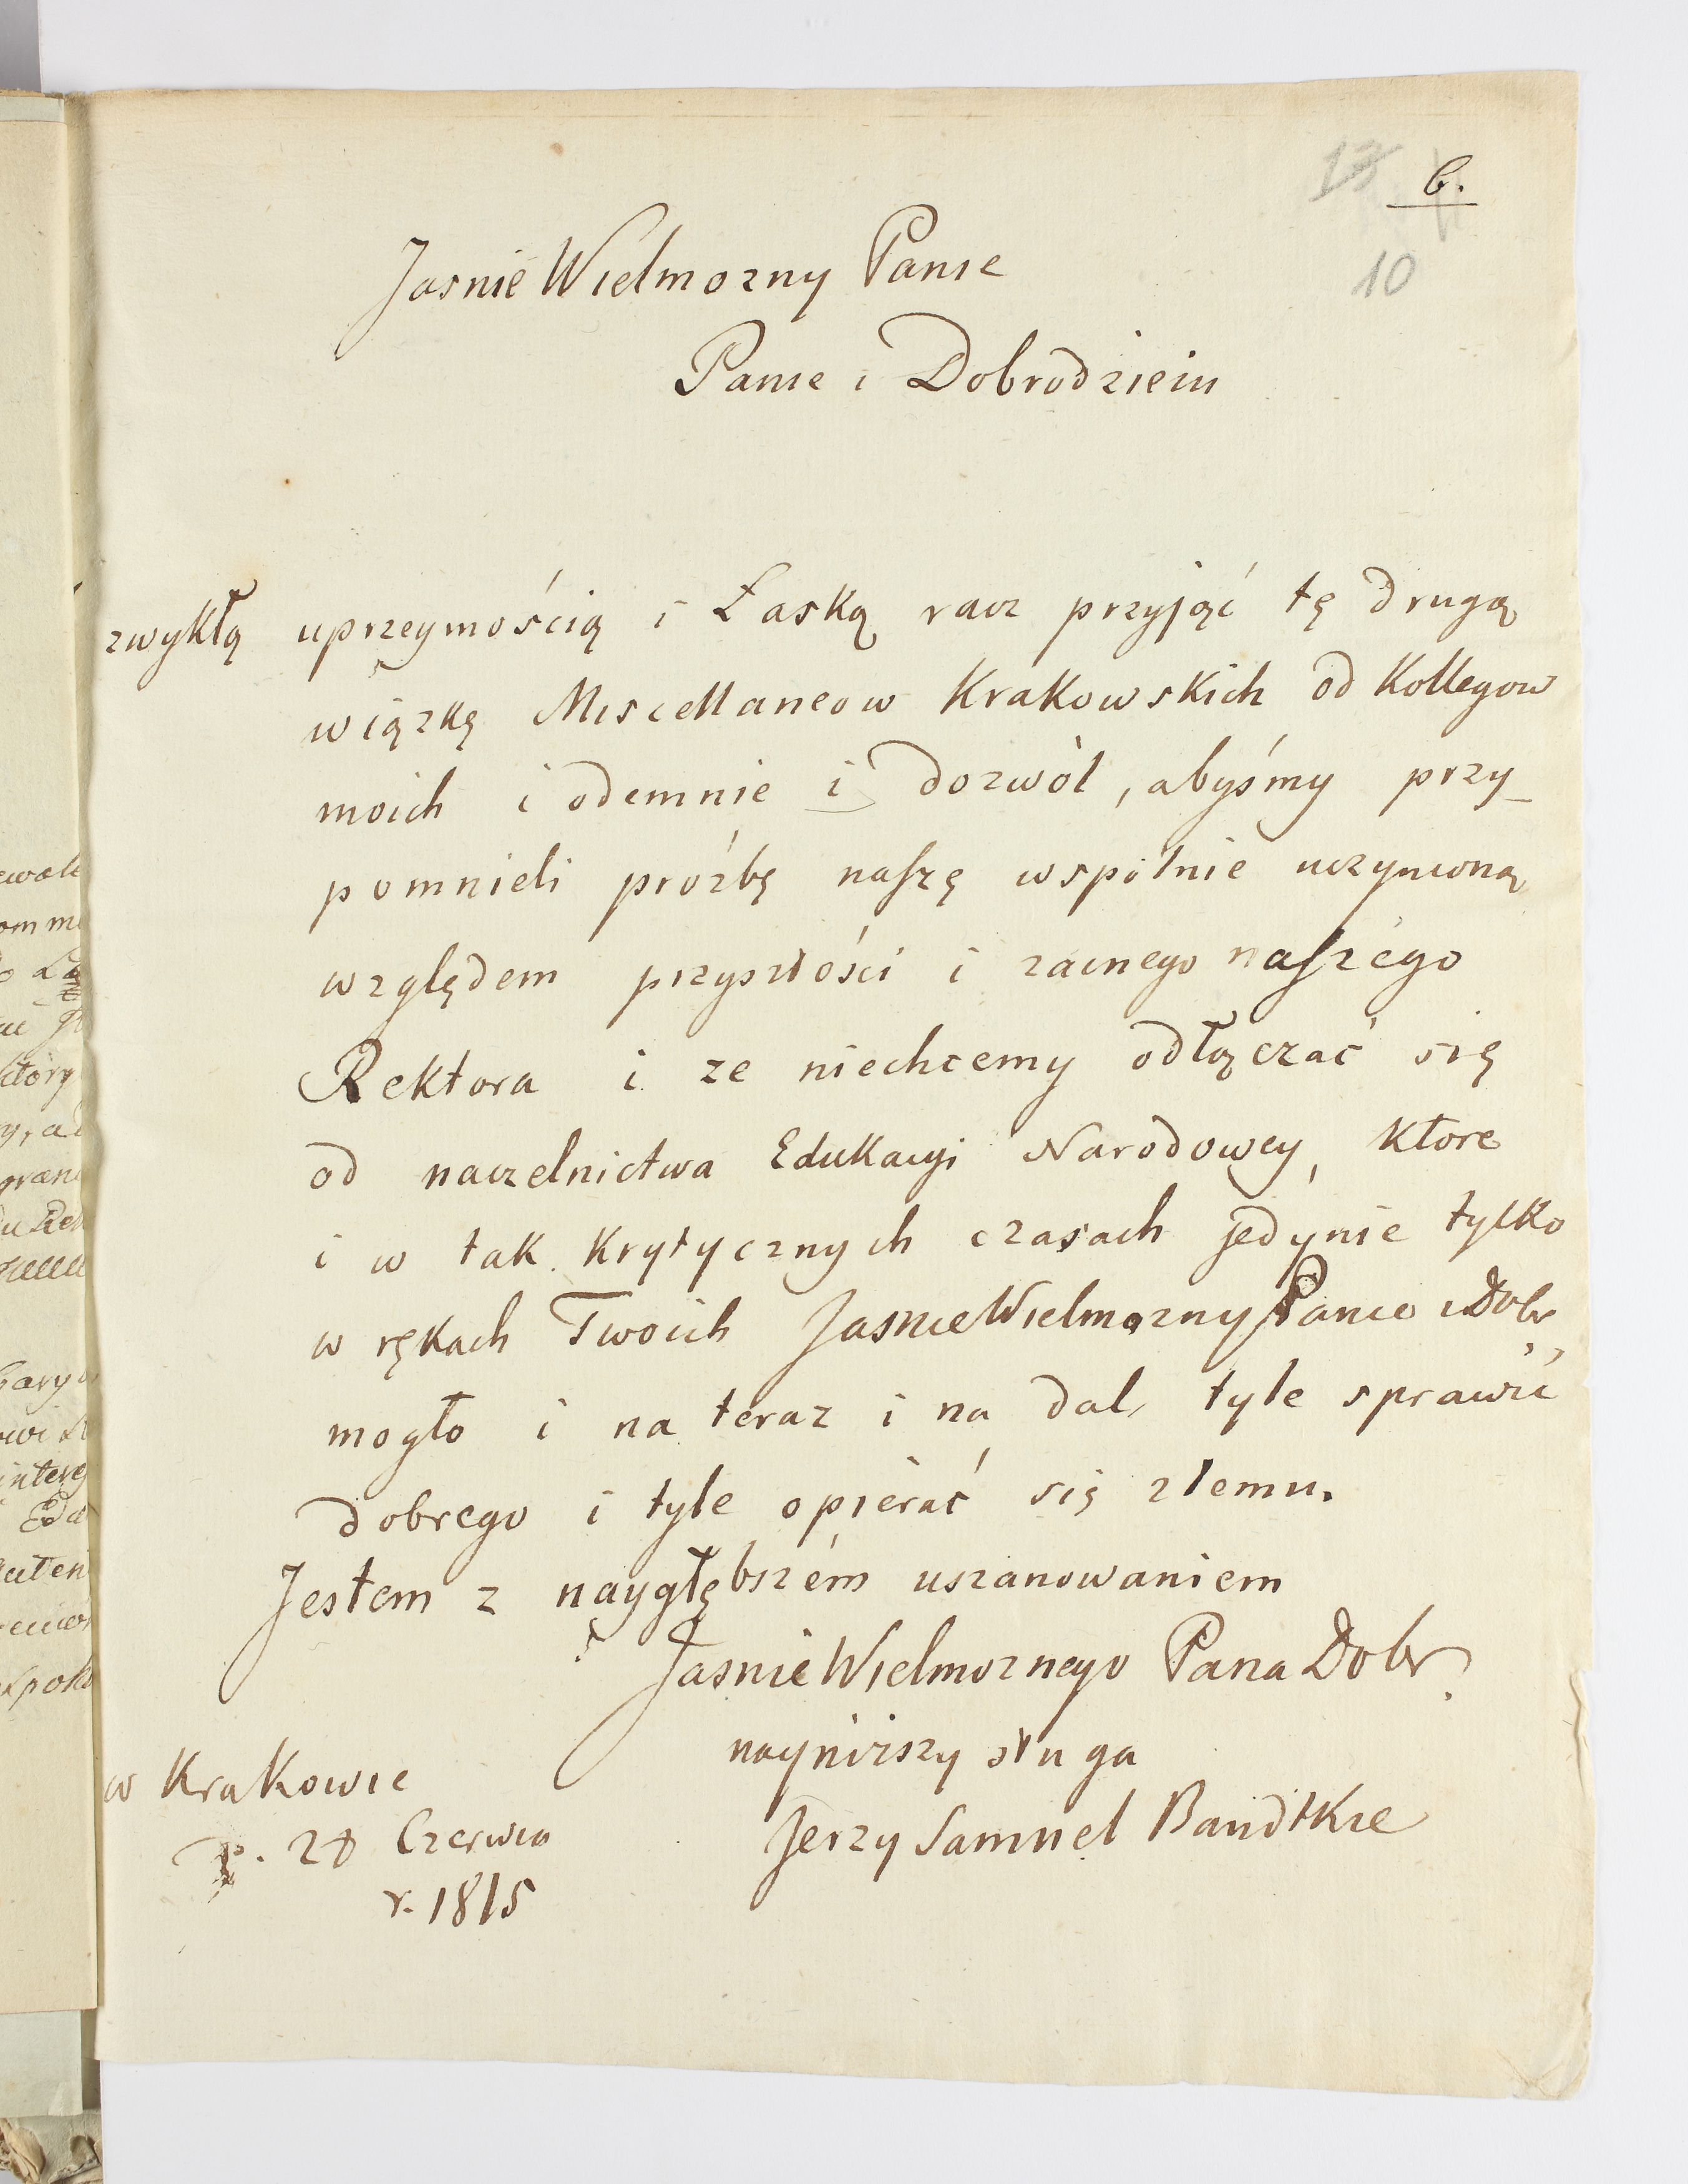 13 6.
10
Jasnie Wielmozny Panie
Panie i Dobrodzieiu
zwykłą uprzeymością i Łaską racz przyjąć tę drugą
wiązkę Miscellaneow Krakowskich od Kollegow
moich i odemnie i dozwól, abyśmy przy_
pomnieli próźbę naszę wspólnie uczynioną
względem przyszłości i zacnego naszego
Rektora i ze niechcemy odłączać się
od naczelnictwa Edukacyi Narodowey, ktore
i w tak krytycznych czasach jedynie tylko
w rękach Twoich JasnieWielmozny Panie i Dobr
mogło i na teraz i na dal, tyle sprawić
dobrego i tyle opierać się złemu.
Jestem z naygłębszém uszanowaniem
JasnieWielmoznego Pana Dobr
nayniższy sługa
Jerzy Samuel Bandtkie
w Krakowie
Czerwca
r. 1815